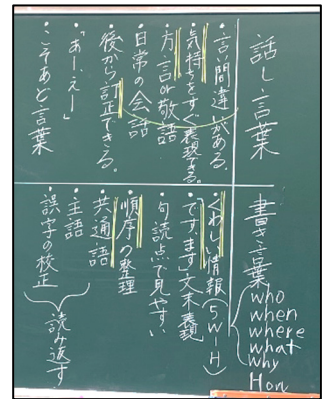 話し言葉
・言い間違いがある。
・気持ちをすぐ表現する。
・方言or敬語
・日常の会話
・後から訂正できる。
・「あー、えー」
・こそあど言葉
書き言葉
who
when
where
what
why
Hon
・くわしい情報(5W-H)
・「ですます」文末表現
・句読点で見やすい
・順序の整理
・共通語
・主語
・誤字の校正
読み返す